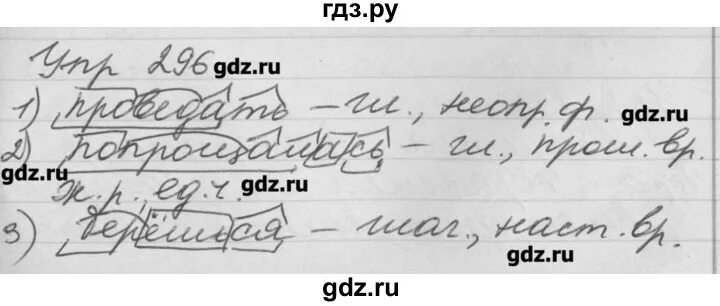 гдз.ру
Упр 296
gdz.ru
1) проведать – гл., неопр. ф.
gdz.ru
2) попрощалась – гл., прош. вр.
gdz.ru
ж. р., ед. ч.
gdz.ru
3) берёшься – глаг., наст. вр.
gdz.ru
gdz.ru